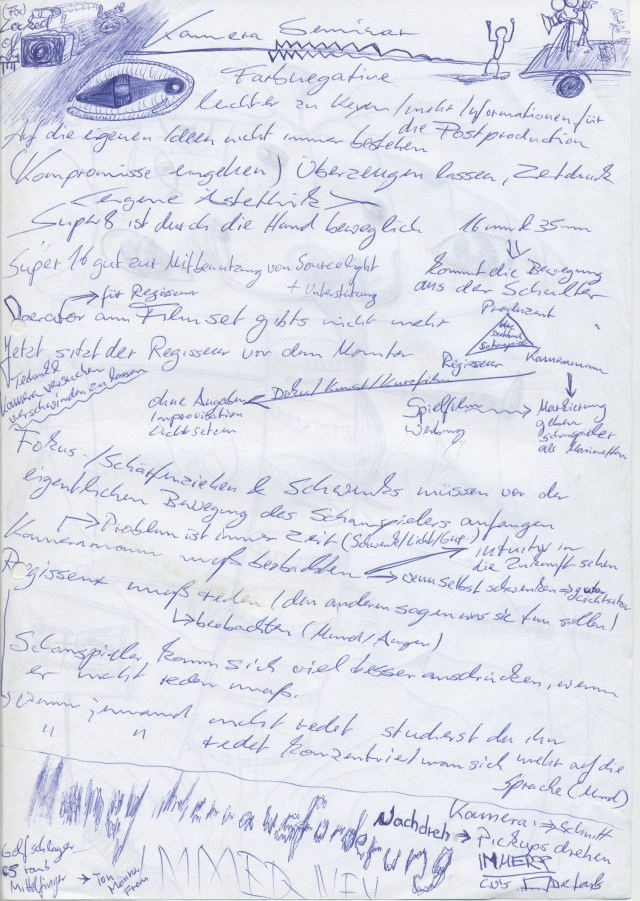 (Fix)
Kamera Seminar
Farbnegative
leichter zu keyen / mehr Informationen für
die Postproduction
Auf die eigenen Ideen nicht immer bestehen
(Kompromisse eingehen) Überzeugen lassen, Zeitdruck
<eigene Ästethik>
Super8 ist durch die Hand beweglich
16mm & 35mm
kommt die Bewegung
aus der Schulter
Super 16 gut zur Mitbenutzung von Sourcelight
+ Unterstützung
für Regisseur
Operator am Filmset gibts nicht mehr
Jetzt sitzt der Regisseur vor dem Monitor
Produzent
Regisseur Kameramann
Technik &
Kamera versuchen
verschwinden zu lassen
Doku/Kunst/Kurzfilm
ohne Angaben
Improvisation
Lichtsetzen
Spielfilm
Werbung
Markierung
geben
Schauspieler
als Marionetten
Fokus-/Schärfenziehen & Schwenks müssen vor der
eigentlichen Bewegung des Schauspielers anfangen
Problem ist immer Zeit (Schwenk/Licht/
Kameramann muß beobachten
intuitiv in
die Zukunft sehen
wenn selbst schwenken guter
Lichtsetzer
Regisseur muß reden / den anderen sagen was sie tun sollen)
beobachten (Mund/Augen)
Schauspieler kann sich viel besser ausdrücken, wenn
er nicht reden muß.
wenn jemand nicht redet studierst du ihn
" " redet konzentriert man sich mehr auf die
Sprache (Mund)
Kamera: Schnitt
Nachdreh Pickups drehen
IMMER
Details
IMMER NEU
Golfschläger
65
Mittelfinger